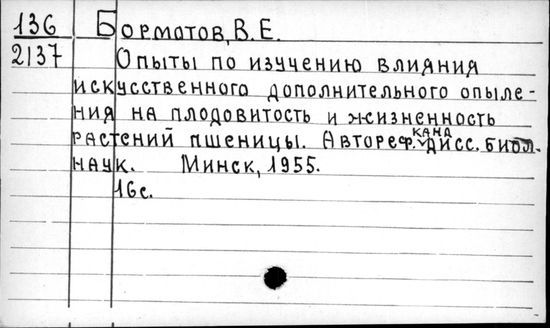 136 Борматов, В. Е.
2137 Опыты по изучению влияния
искусственного дополнительного опыле-
ния на плодовитость и жизненность
растений пшеницы. Автореф. канд дисс. биол.
наук. Минск, 1955.
16с.